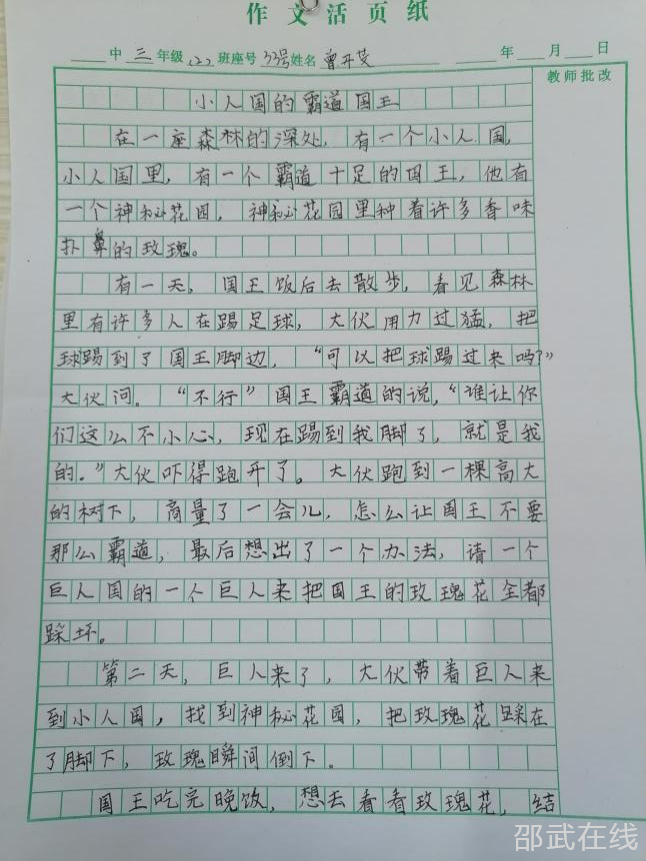 作文活页纸
中三年级(2)班座号33号姓名曾开荧 年 月 日
教师批改
小人国的霸道国王
在一座森林的深处，有一个小人国，
小人国里，有一个霸道十足的国王，他有
一个神秘花园，神秘花园里种着许多香味
扑鼻的玫瑰。
有一天，国王饭后去散步，看见森林
里有许多人在踢足球，大伙用力过猛，把
球踢到了国王脚边，“可以把球踢过来吗？”
大伙问。“不行”国王霸道的说，“谁让你
们这么不小心，现在踢到我脚了，就是我
的.”大伙吓得跑开了。大伙跑到一棵高大
的树下，商量了一会儿，怎么让国王不要
那么霸道，最后想出了一个办法，请一个
巨人国的一个巨人来把国王的玫瑰花全都
踩坏。
第二天，巨人来了，大伙带着巨人来
到小人国，找到神秘花园，把玫瑰花踩在
了脚下，玫瑰瞬间倒下.
国王吃完晚饭，想去看看玫瑰花，结
邵武在线